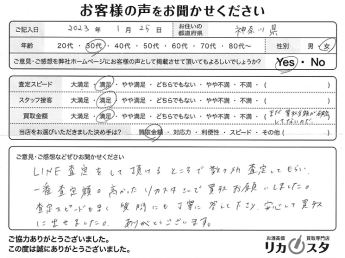 お客様の声をお聞かせください
ご記入日 2023年 1月 25日 お住いの都道府県 神奈川県
年齢 20代・30代・40代・50代・60代・70代・80代 性別 男・女
ご意見・ご感想を弊社ホームページにお客様の声として掲載させて頂いてもよろしいでしょうか？ Yes・No
査定スピード 大満足・満足・やや満足・どちらでもない・やや不満・不満・( )
スタッフ接客 大満足・満足・やや満足・どちらでもない・やや不満・不満・( )
買取金額 大満足・満足・やや満足・どちらでもない・やや不満・不満・( )
当店をお選びいただきました決め手は？ 買取金額・対応力・利便性・スピード・その他( )
ご意見・ご感想などぜひお聞かせください
LINE査定をして頂けるところで数カ所査定してもらい、
一番査定額の高かったリカスタさんで買取お願いしました。
査定スピードも早く質問にも丁寧に答して下さり、安心して買取
に出せました。ありがとうございます。
ご協力ありがとうございました。
この度は誠にありがとうございました。
お酒高価買取専門店
リカスタ